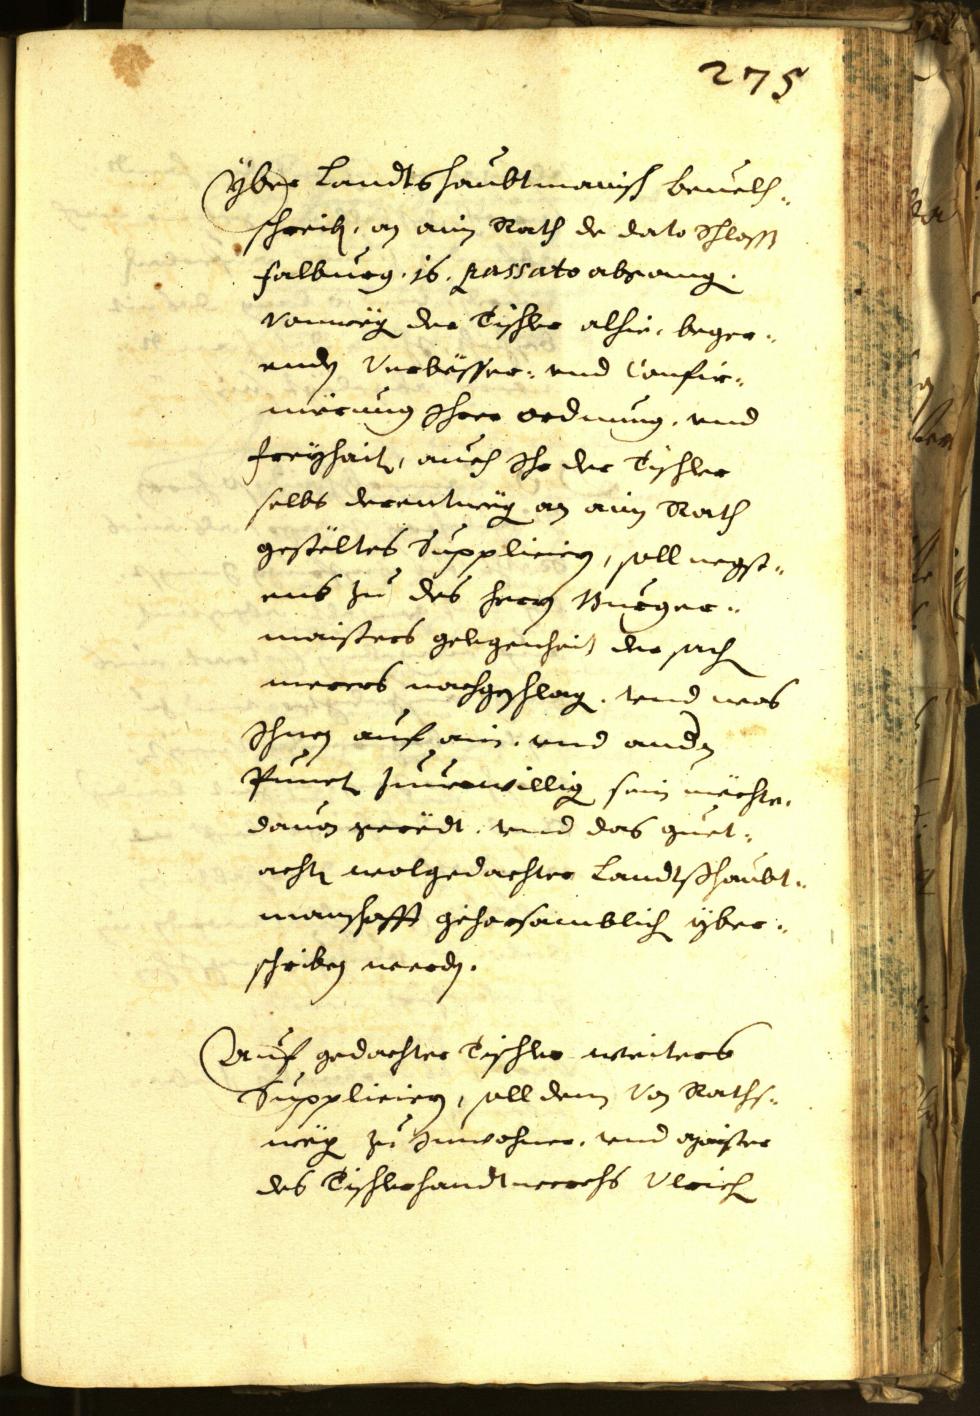 275
Yber Landtshaubtmanisch beuelch-
schreiben, an ain Rath de dato Schloss
Salburg. 16. passato abgang.
Vonweg der Tischler alhie, beger-
enden Verbesser- vnd Confir-
mierung Ihrer ordnung. vnd
freyhait, auch Ihr der Tischler
selbs derentweg an ain Rath
gestöltes Supplicien, soll negst-
ens zu des herrn Burger-
maisters gelegenheit der sach
merers nachgschlag. vnd was
Ihnen auf ain. vnd andern
Punct zuuerwillig sein möchte,
dauon geredt. vnd das guet-
acht wolgedachter Landtshaubt-
manschafft gehorsamblich yber-
schriben werden.
Auf gedachter Tischler weiters
Supplicien, soll dem Von Raths-
weg zu Inwohner. vnd Maister
des Tischlerhandtwerchs Vlrich